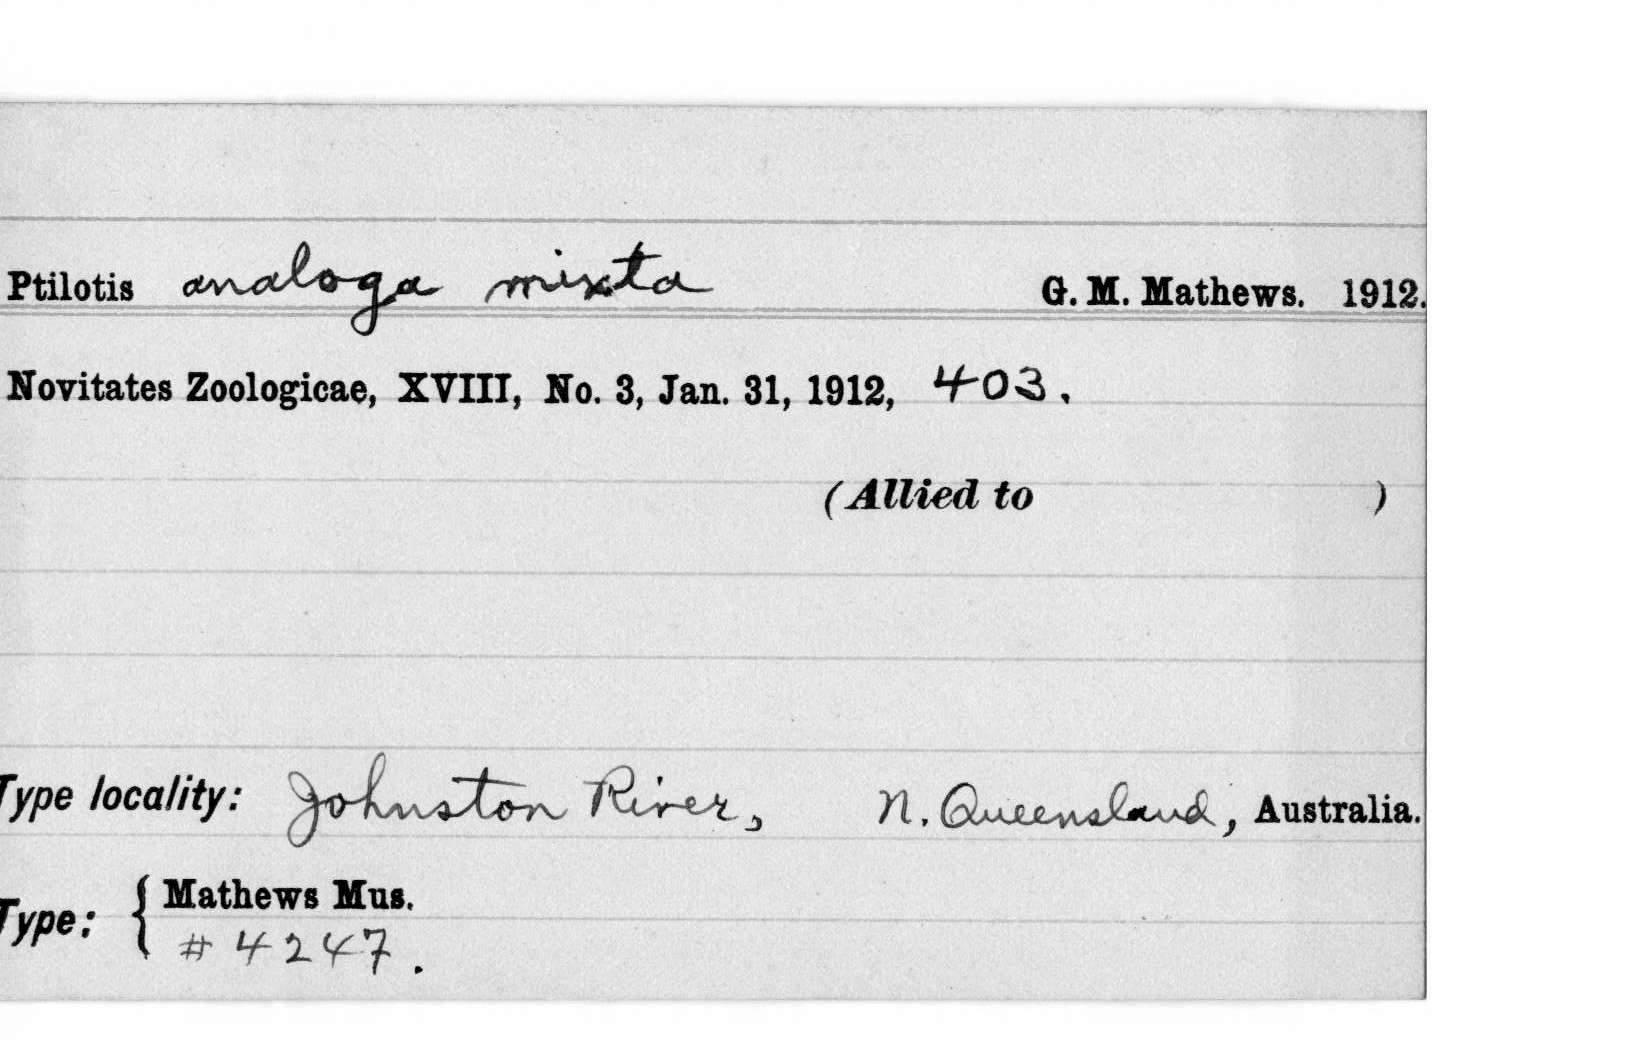 Ptilotis analoga mixta G. M. Mathews. 1912.
Novitates Zoologicae, XVIII, No. 3, Jan. 31, 1912, 403.
(Allied to )
Type locality: Johnston River, N. Queensland, Australia.
Type: { Mathews Mus.
# 4247.